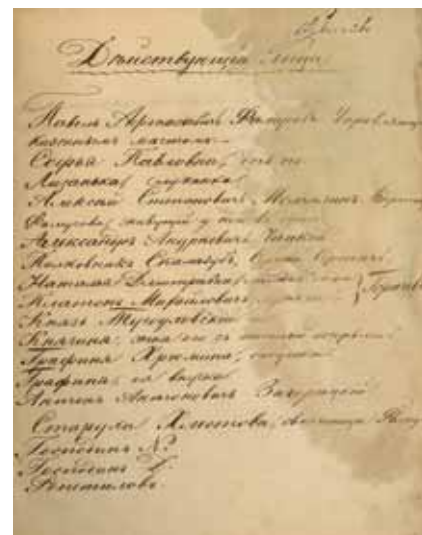 Действующія лица
Павелъ Афанасьевичъ Фамусовъ Управляющій
казеннымъ мѣстомъ
Софья Павловна, дочь его
Лизанька служанка
Алексѣй Степановичъ Молчалинъ
Фамусова, живущій у него въ домѣ
Александръ Андреевичъ Чацкій
Полковникъ Скалозубъ, Сергѣй Сергѣевичъ
Наталья Дмитріевна
Платонъ Михайловичъ } Горичевы
Князь Тугоуховскій
Княгиня, жена его съ
Графиня Хрюмина, бабушка
Графиня, ея внучка
Антонъ Антоновичъ Загорѣцкій
Старуха Хлестова,
Господинъ N.
Господинъ D.
Репетиловъ